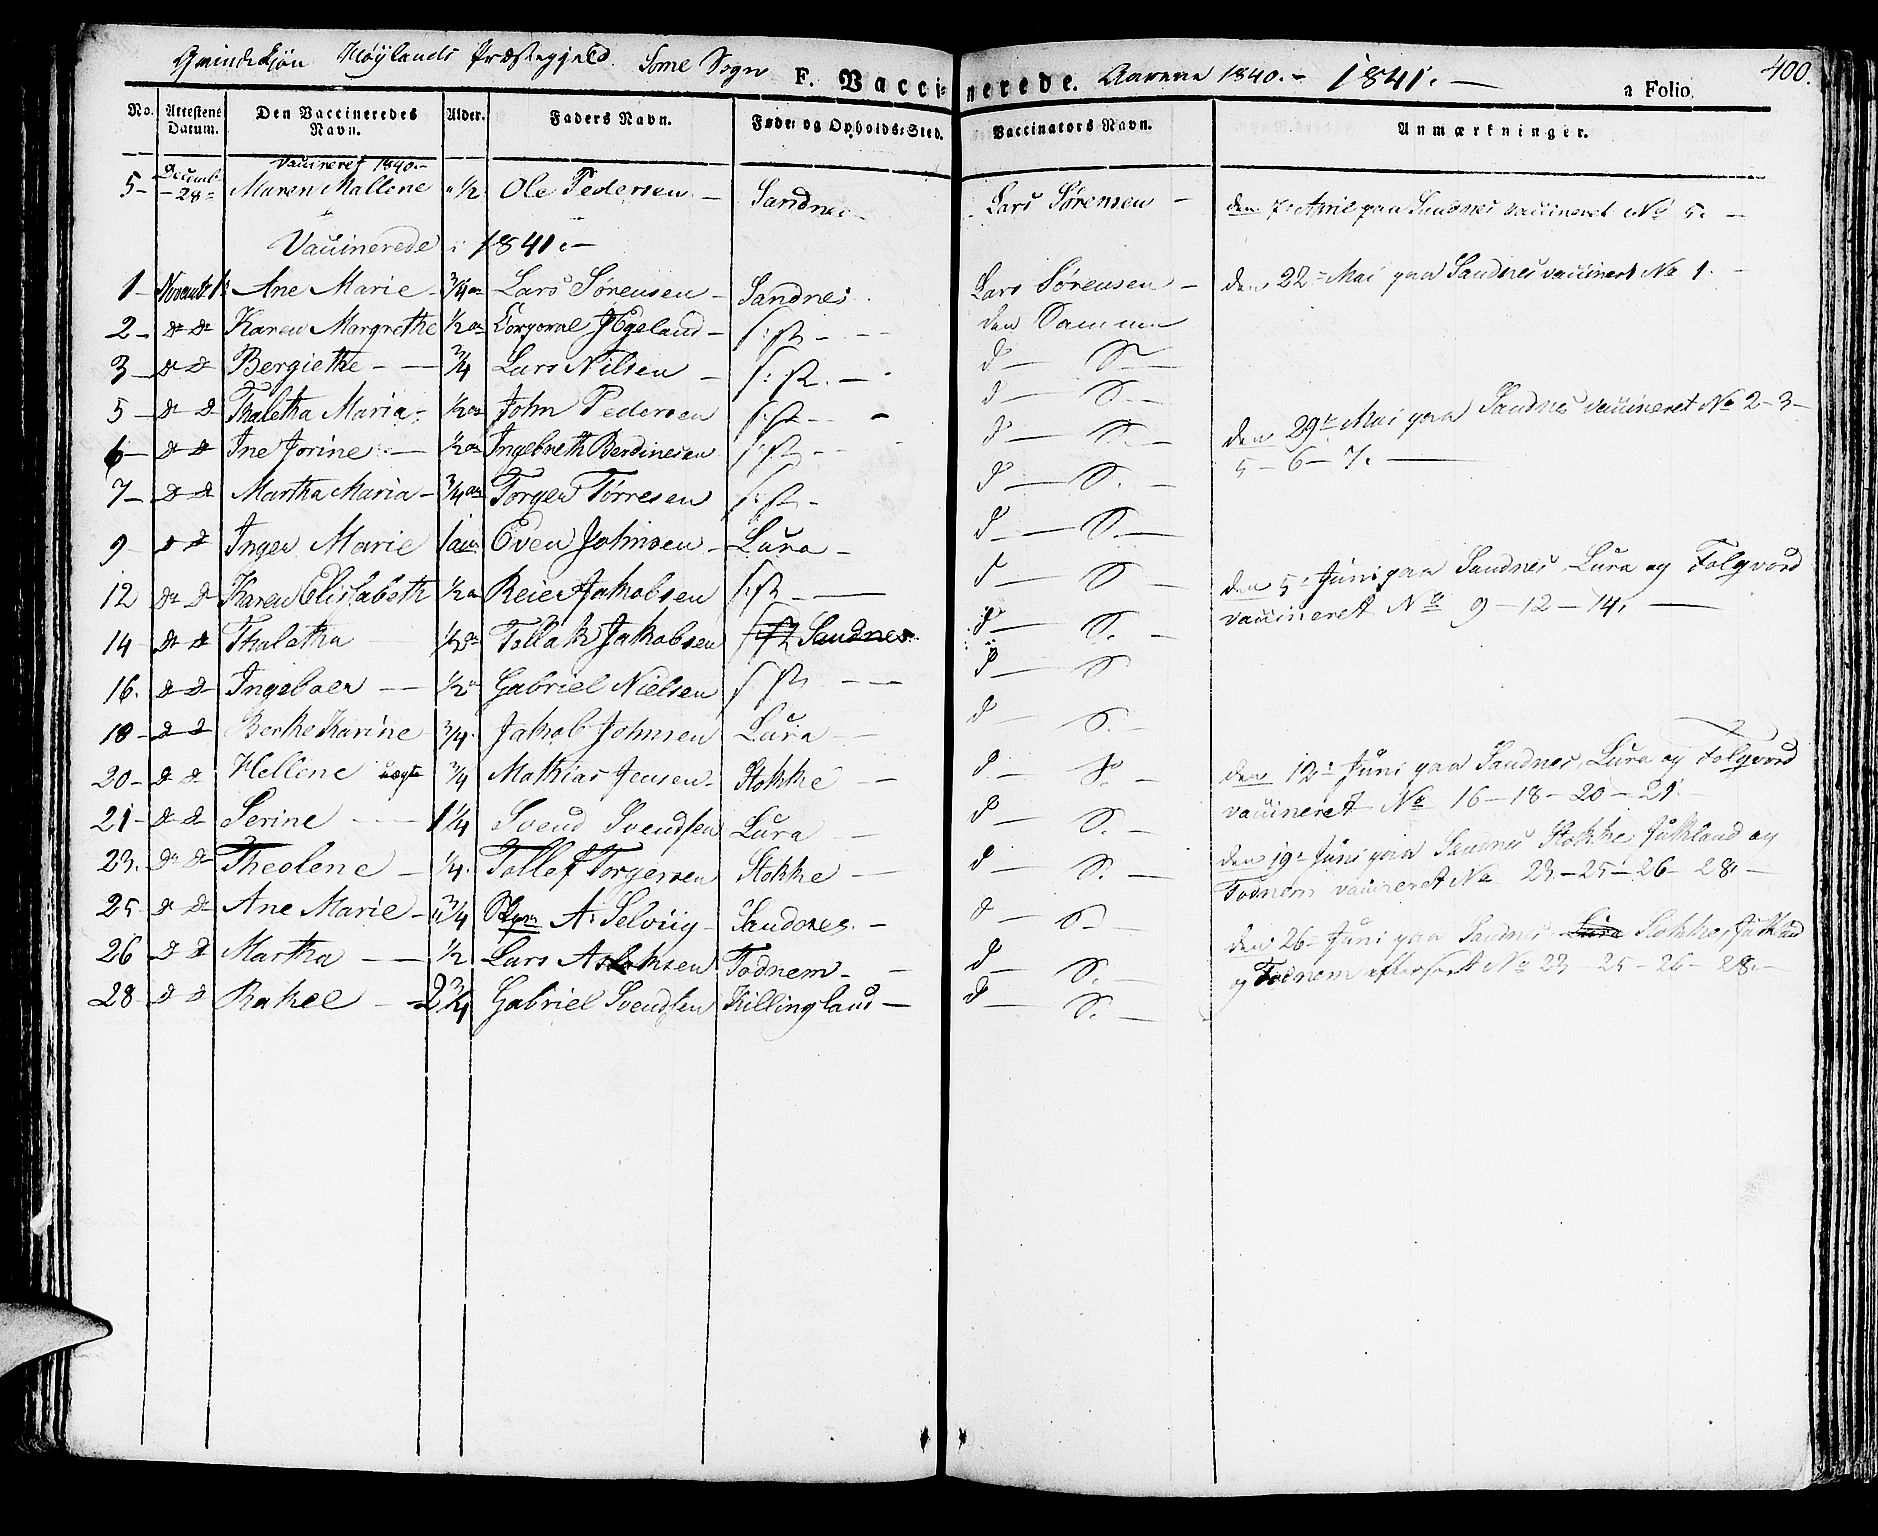 Qvindekjøn Høylands Præstegjeld. Some Sogn F. Vaccinerede. Aarene 1840.- 1841.- a Folio 400.
No. Attestens Datum. Den Vaccineredes Navn. Alder. Faders Navn. Føde- og Opholds-Sted. Vaccinators Navn. Anmærkninger.
Vaccineret 1840.-
5- Decemb. 28 Maren Mallene 1/2 Ole Pedersen - Sandnes Lars Sørensen - den 7 April paa Sandnes vaccineret No 5. -
Vaccinerede i 1841.-
1- Novemb. 1 Ane Marie - 3/4 Lars Sørensen - Sandnes Lars Sørensen - den 22 Mai paa Sandnes vaccineret No 1. -
2- Do Do Karen Margrethe 1/2 Corporal Egeland - den Samme
3- Do Do Bergiethe - - 3/4 Lars Nilsen - d - S -
5- Do Do Thaletha Maria - 1/2 John Pedersen d - S. - den 29 Mai paa Sandnes vaccineret No 2-3-
6- Do Do Ine Jorine - 1/2 Ingebreth Berdinesen d - S. - 5-6-7. -
7- Do Do Martha Maria - 3/4 Torger Torresen d - S. -
9- Do Do Inger Marie 1 Even Johnsen - Lura - d - S. -
12 Do Do Karen Elisabeth 1/2 Reier Jakobsen d - S. - den 5 Juni paa Sandnes, Lura og Folgvord
14 Do Do Thaletha 1/2 Tollak Jakobsen Sandnes d - S. - vaccineret No 9-12-14. -
16. Do Do Ingeboer - - 1/2 Gabriel Nielsen d - S
18- Do Do Berthe Karine 3/4 Jakob Johnsen Lura d S. -
20- Do Do Hellene uægte 3/4 Mathias Jensen - Stokke - d - S - den 12 Juni paa Sandnes, Lura og Folgvord
21- Do Do Serine - - 1 1/4 Svend Svendsen Lura d - S. - vaccineret No 16-18-20-21.
23. Do Do Theolene - 1/4. Tollef Torgersen Stokke - d - S. - den 19 Juni paa Sandnes Stokke Julkland og Todnem vaccineret No 23-25-26-28. -
25 Do Do Ane Marie - 3/4 A. Selviig - Sandnes. - d - S - den 26 Juni paa Sandnes Lura Stokke
26 Do Do Martha - - 1/2 Lars Aslaksen Todnem - d - S. - og Todnem efterseet No 23-25-26-28. -
28- Do Do Rakel - 2 3/4 Gabriel Svendsen Killingland - d - S. -